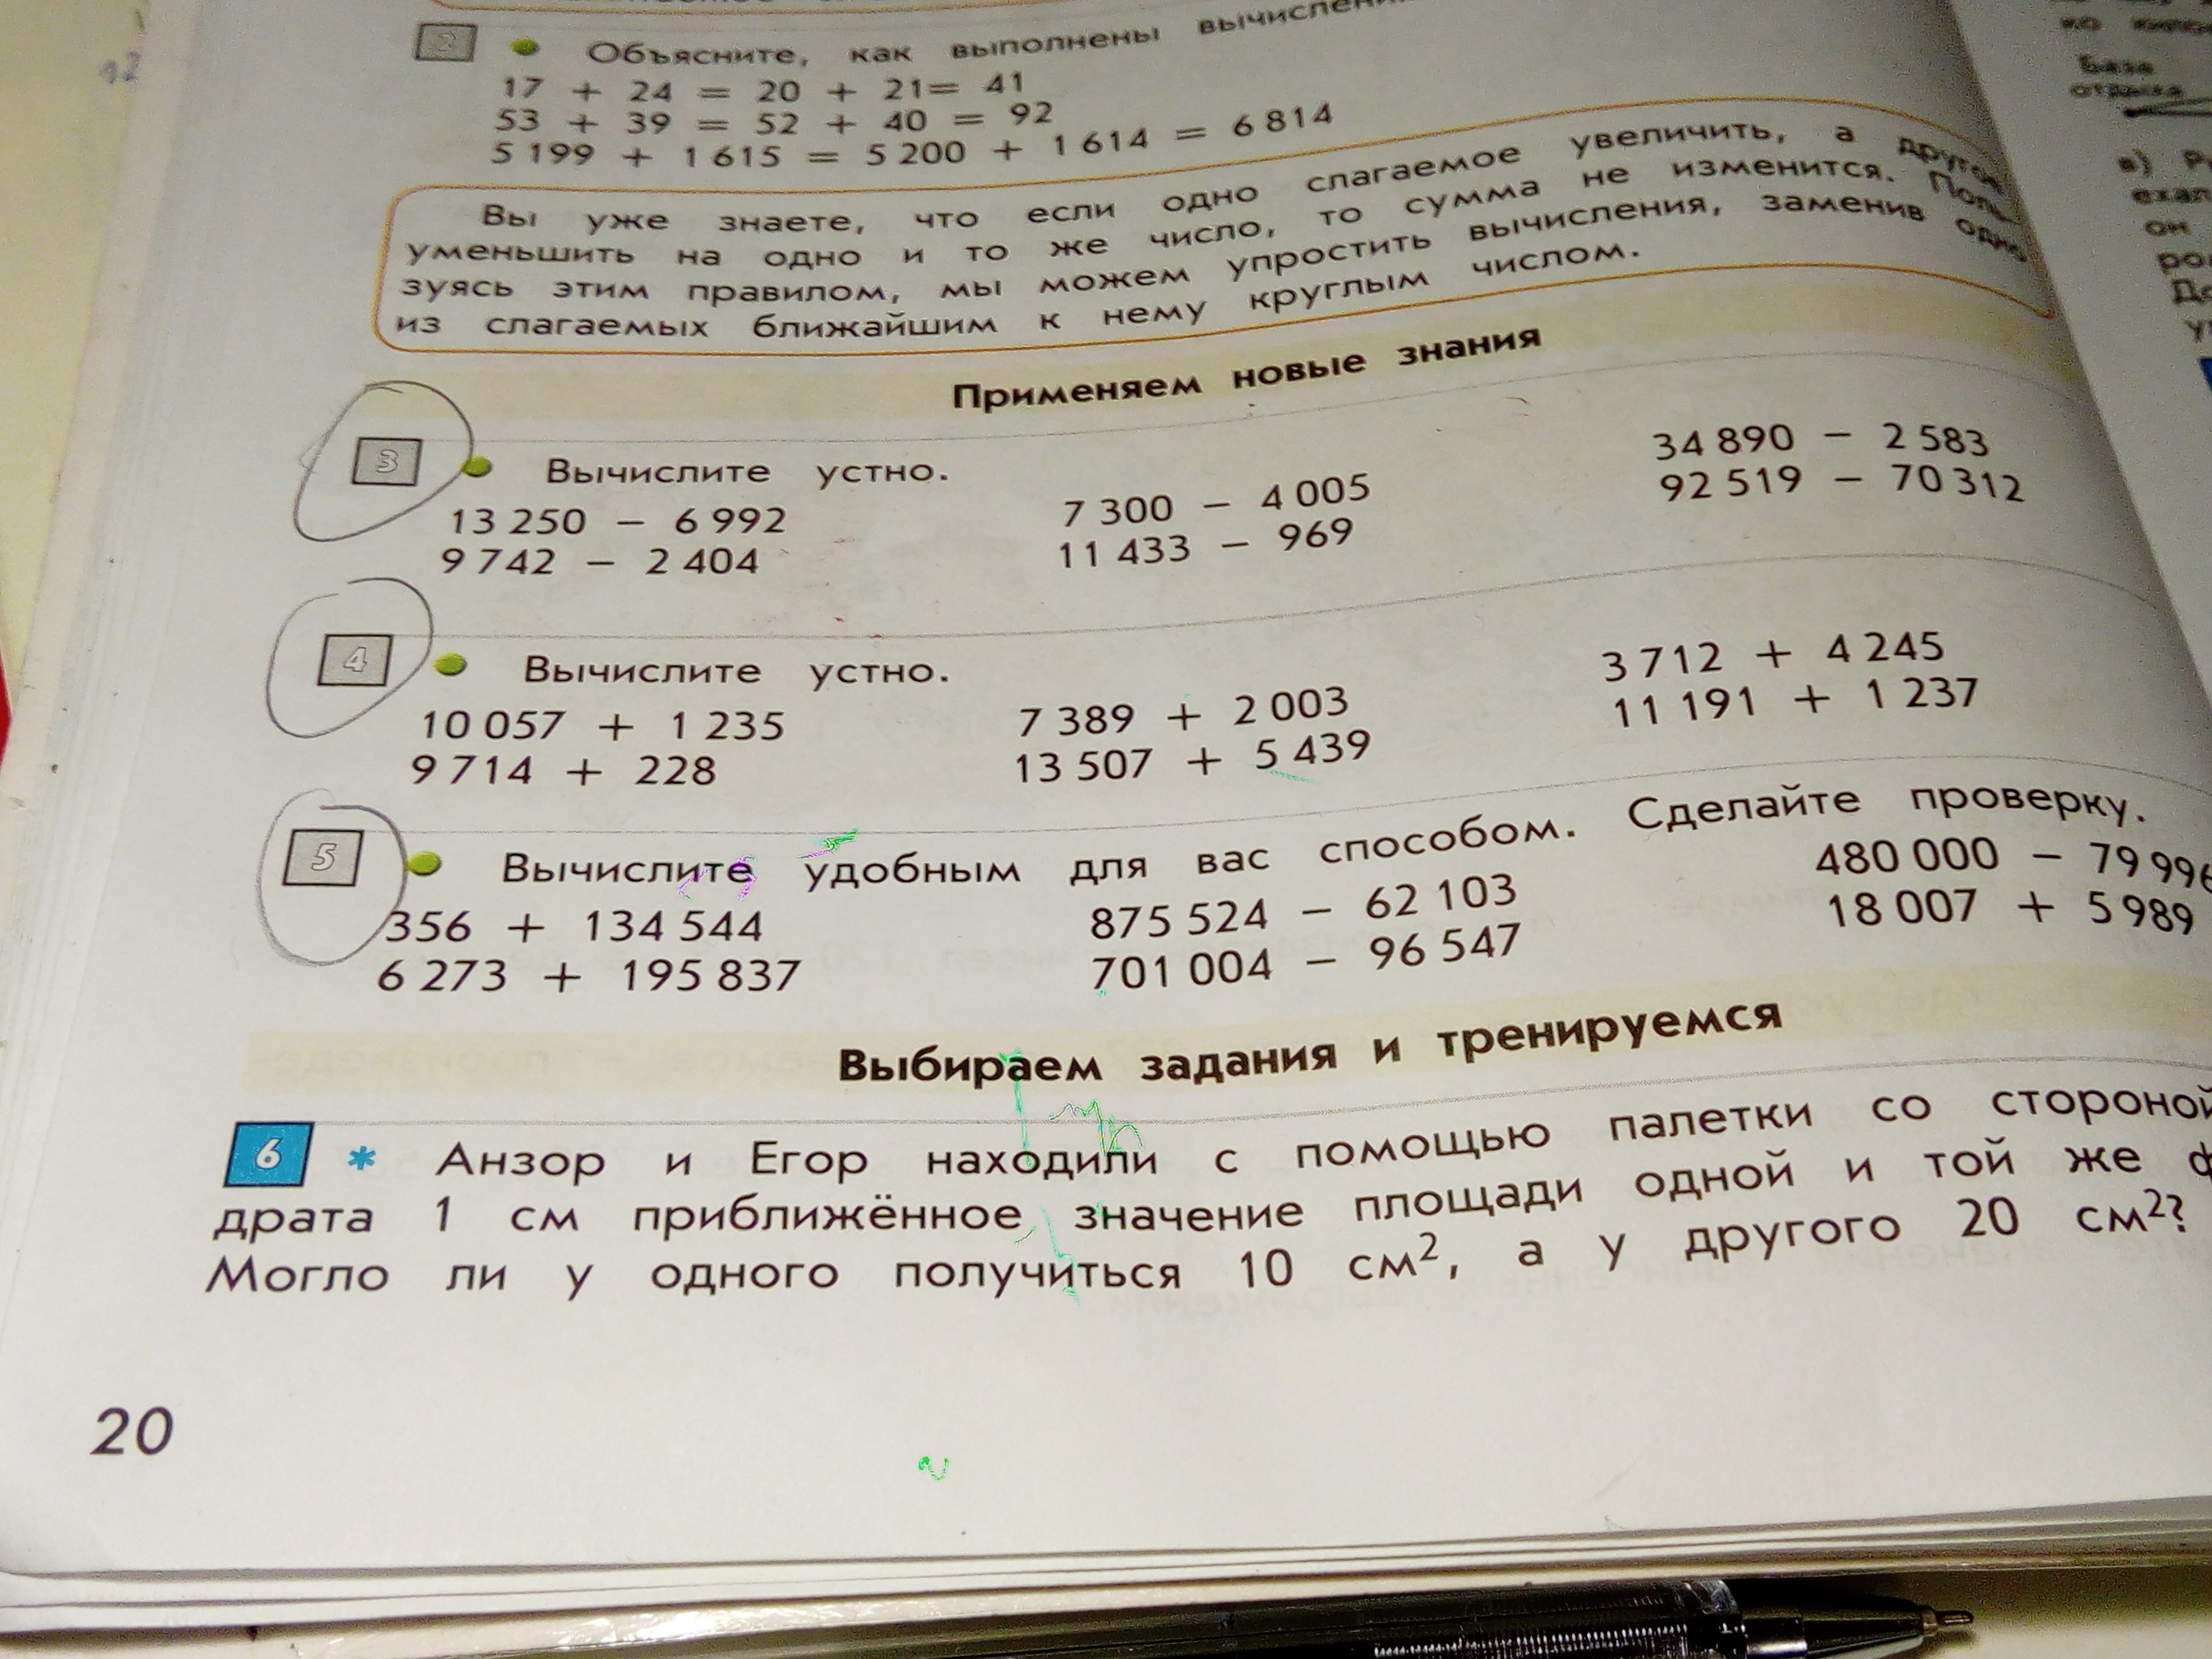 2 Объясните, как выполнены
17 + 24 = 20 + 21= 41
53 + 39 = 52 + 40 = 92
5 199 + 1 615 = 5 200 + 1 614 = 6 814
Вы уже знаете, что если одно слагаемое увеличить, а другое
уменьшить на одно и то же число, то сумма не изменится. Поль-
зуясь этим правилом, мы можем упростить вычисления, заменив одно
из слагаемых ближайшим к нему круглым числом.
Применяем новые знания
3 Вычислите устно.
13 250 − 6 992 7 300 − 4 005 34 890 − 2 583
9 742 − 2 404 11 433 − 969 92 519 − 70 312
4 Вычислите устно.
10 057 + 1 235 7 389 + 2 003 3 712 + 4 245
9 714 + 228 13 507 + 5 439 11 191 + 1 237
5 Вычислите удобным для вас способом. Сделайте проверку.
356 + 134 544 875 524 − 62 103 480 000 − 79 996
6 273 + 195 837 701 004 − 96 547 18 007 + 5 989
Выбираем задания и тренируемся
6 * Анзор и Егор находили с помощью палетки со стороной
драта 1 см приближённое значение площади одной и той же ф
Могло ли у одного получиться 10 см², а у другого 20 см²?
20
База
отдыха